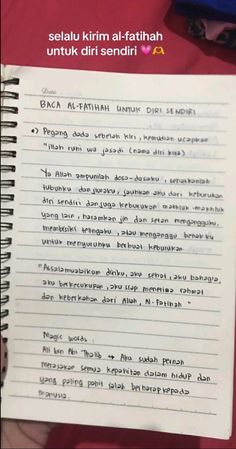 selalu kirim al-fatihah
untuk diri sendiri 💗🫶
Date:
BACA AL-FATIHAH UNTUK DIRI SENDIRI
•) Pegang dada sebelah kiri, kemudian ucapkan
"illah ruhi wa jasadi (nama diri kita)
Ya Allah ampunilah dosa-dosaku, sehatkanlah
tubuhku dan jiwaku, jauhkan aku dari keburukan
diri sendiri dan juga keburukan makhluk-makhluk
yang lain, haramkan jin dan setan mengangguku,
membisiki telingaku, atau mengganggu benakku
untuk menyuruhku berbuat keburukan
"Assalamualaikum diriku, aku sehat, aku bahagia,
aku berkecukupan, aku siap menerima rahmat
dan keberkahan dari Allah, Al-Fatihah"
Magic words :
Ali bin Abi Thalib → Aku sudah pernah
merasakan semua kepahitan dalam hidup dan
yang paling pahit ialah berharap kepada
manusia.